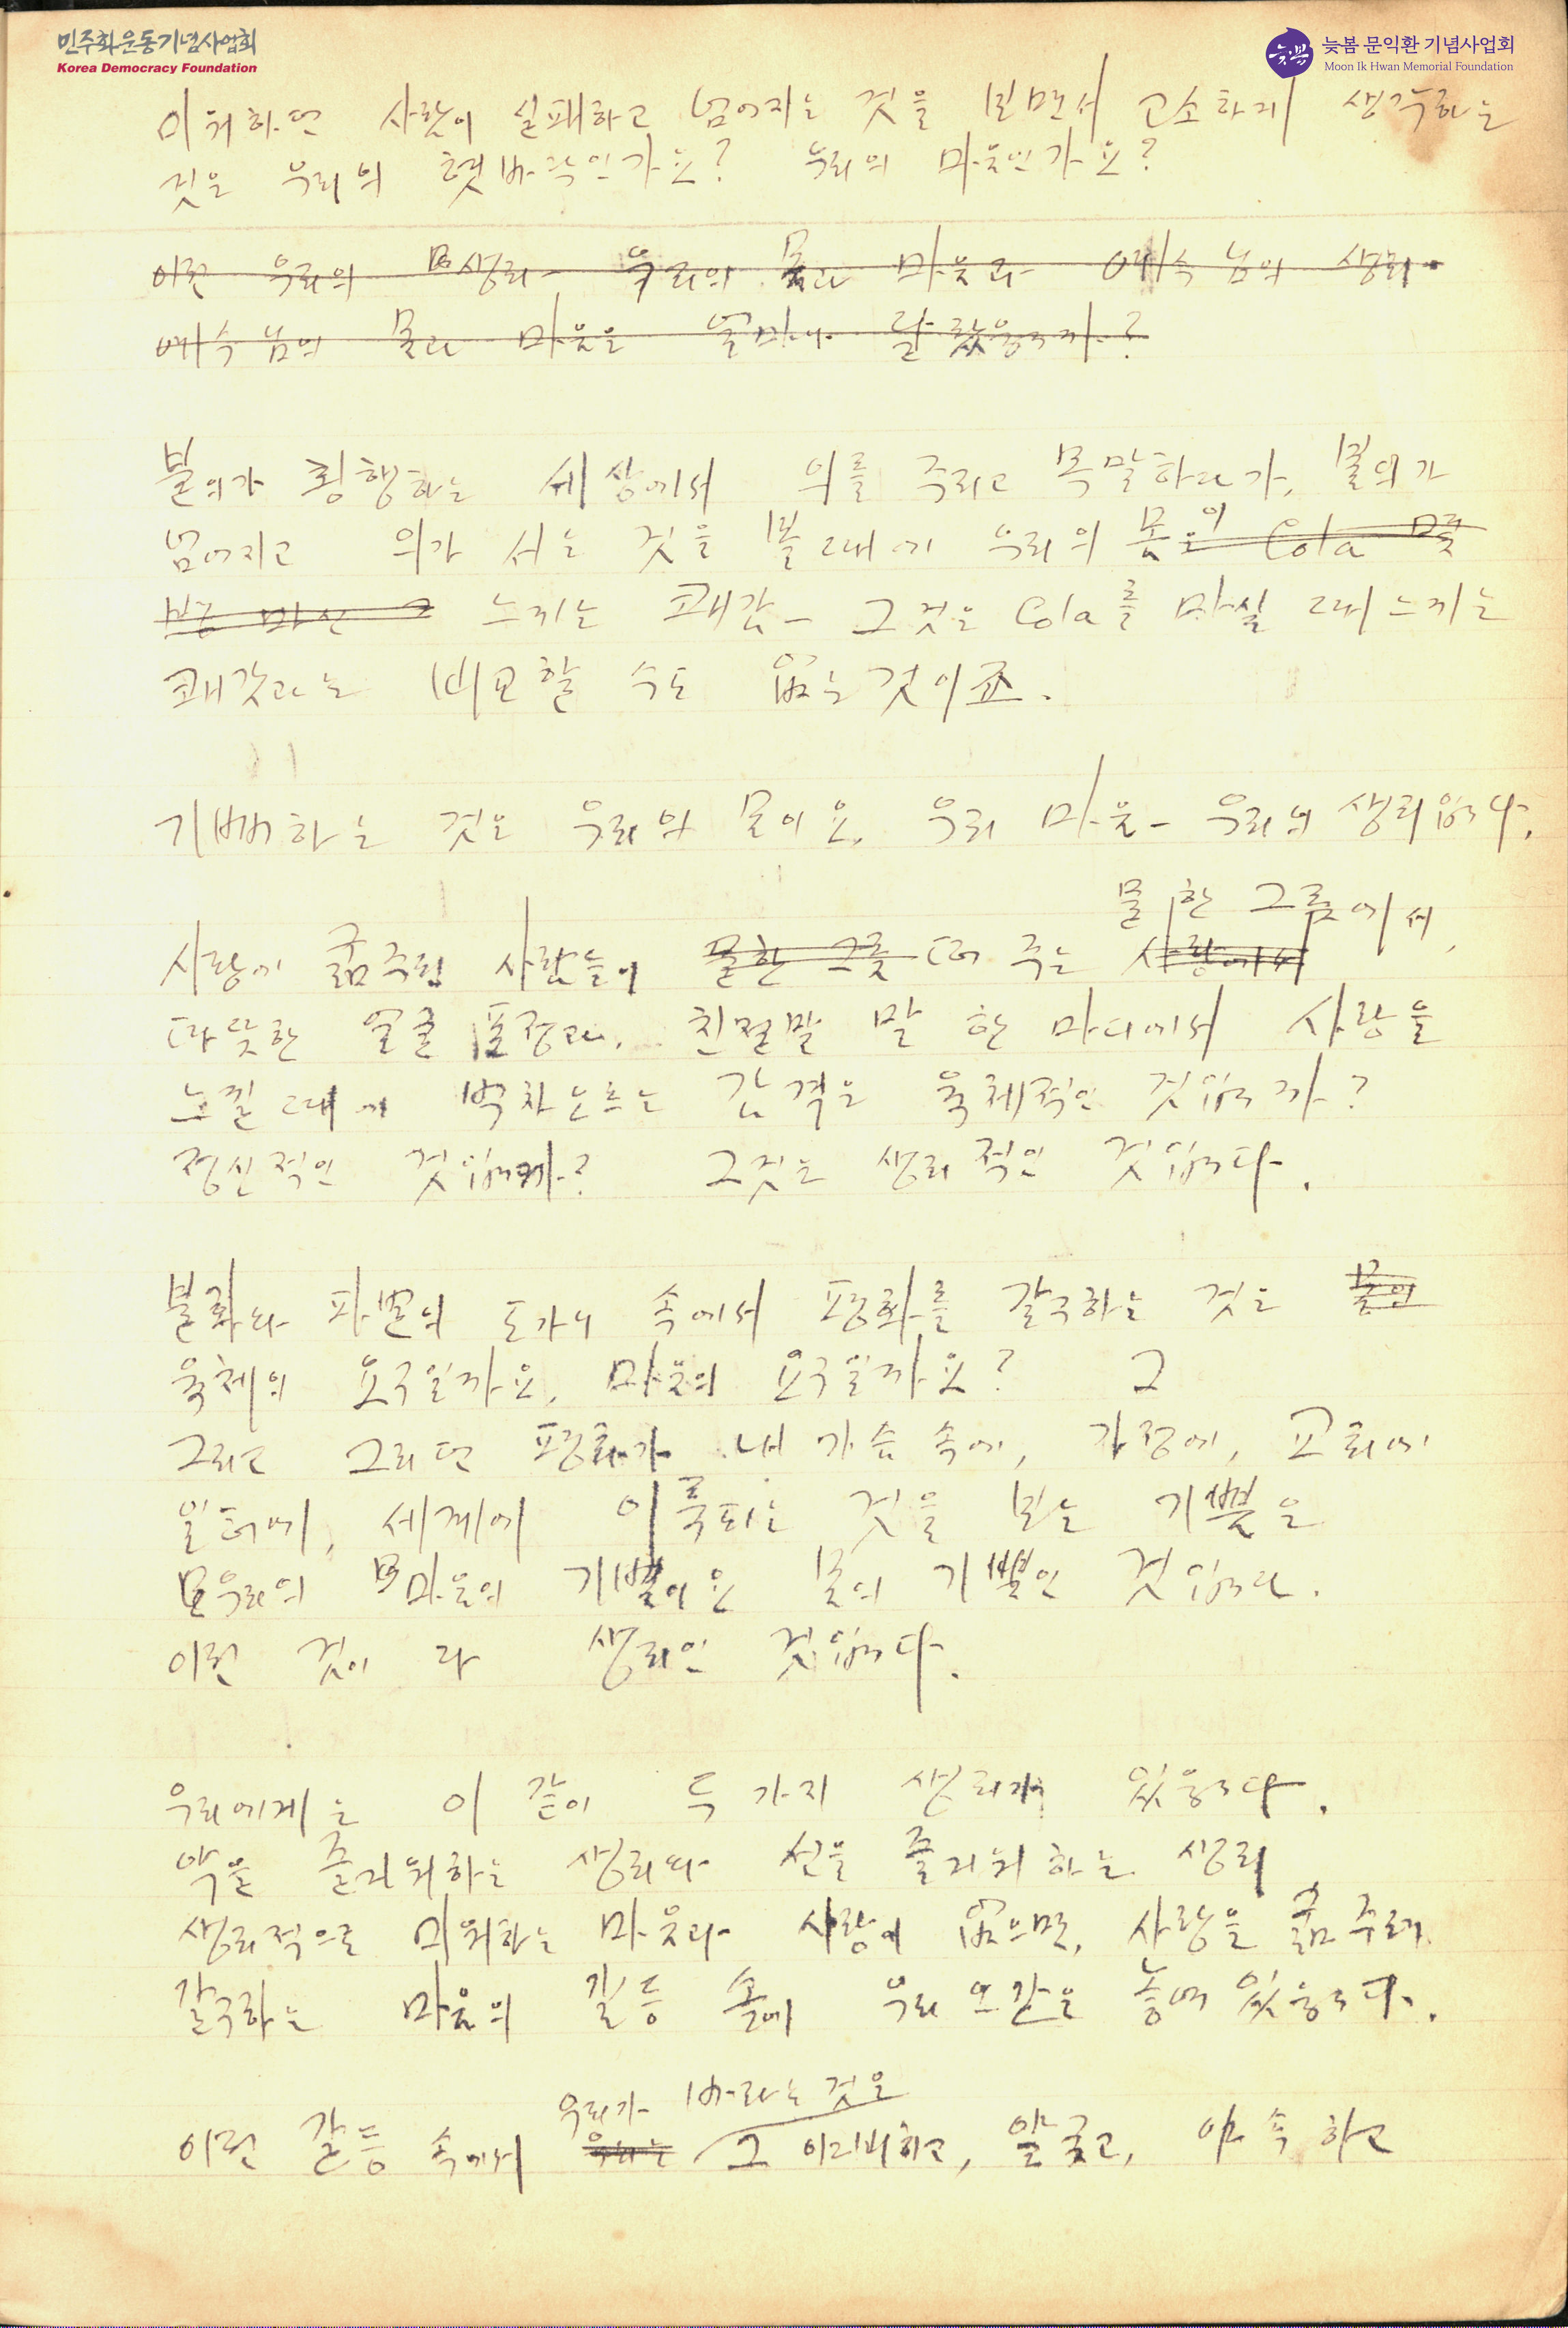 민주화운동기념사업회
Korea Democracy Foundation
늦봄
늦봄 문익환 기념사업회
Moon Ik Hwan Memorial Foundation
미워하던 사람이 실패하고 넘어지는 것을 보면서 고소하게 생각하는
것은 우리의 혓바닥인가요? 우리의 마음인가요?
이런 우리의 생리- 우리의 몸과 마음과 예수님의 생리-
예수님의 몸과 마음은 얼마나 달랐을까?
불의가 횡행하는 세상에서 의를 주리고 목말하다가, 불의가
넘어지고 의가 서는 것을 볼 때에 우리의 몸이 Cola
마신 느끼는 쾌감- 그것은 Cola를 마실 때 느끼는
쾌감과는 비교할 수도 없는 것이죠.
기뻐하는 것은 우리의 몸이요, 우리 마음- 우리의 생리입니다.
물 한 그릇에서,
사랑에 굶주린 사람들이 물한 그릇 떠 주는 사랑에서
따뜻한 얼굴 표정과, 친절말 말 한 마디에서 사랑을
느낄 때에 벅차오르는 감격은 육체적인 것입니까?
정신적인 것입니까? 그것은 생리적인 것입니다.
불화와 파벌의 도가니 속에서 평화를 갈구하는 것은 몸의
육체의 요구일까요, 마음의 요구일까요? 그
그리고 그리던 평화가 내 가슴 속에, 가정에, 교회에
일터에, 세계에 이룩되는 것을 보는 기쁨은
우리의 마음의 기쁨이요 몸의 기쁨인 것입니다.
이런 것이 다 생리인 것입니다.
우리에게는 이 같이 두 가지 생리가 있읍니다.
악을 즐거워하는 생리와 선을 즐거워하는 생리
생리적으로 미워하는 마음과 사랑이 없으면, 사랑을 굶주려
갈구하는 마음의 갈등 속에 우리 인간은 놓여 있읍니다.
우리가 바라는 것은
이런 갈등 속에서 우리는 그 야비하고, 얄궂고, 야속하고